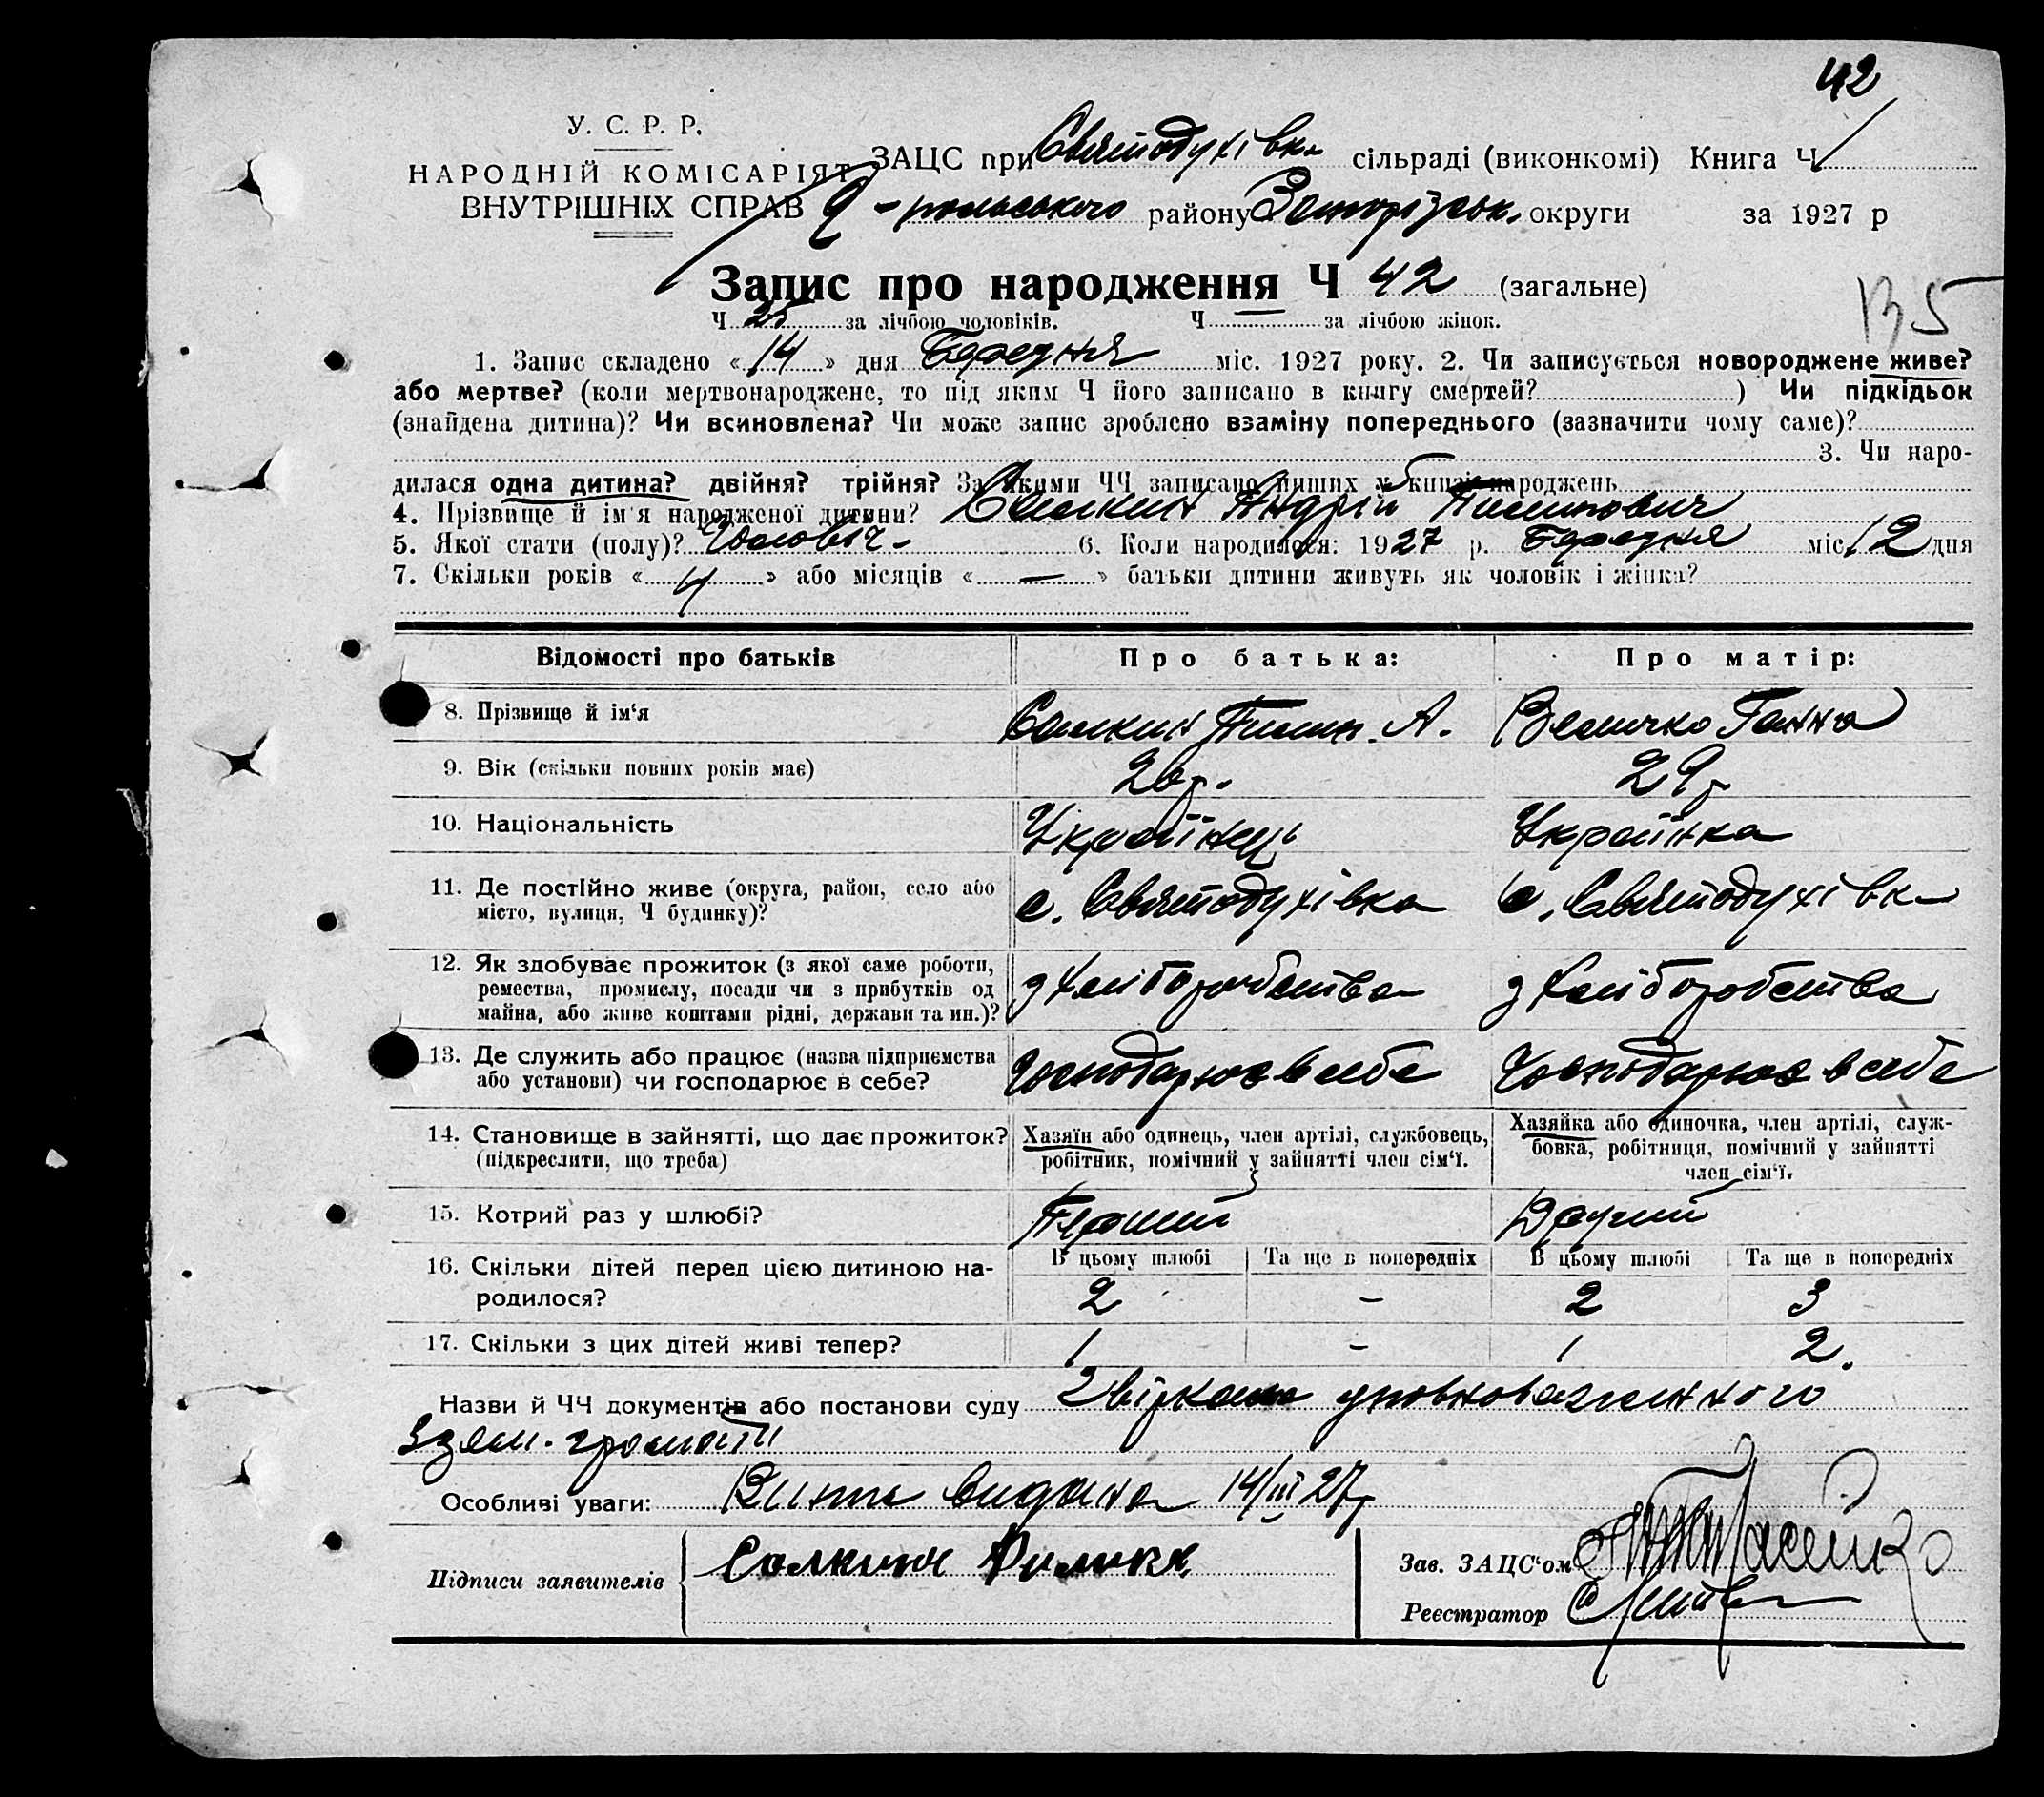 42
У. С. Р. Р.
НАРОДНІЙ КОМІСАРІЯТ
ВНУТРІШНІХ СПРАВ
ЗАЦС при Святодухівка сільраді (виконкомі) Книга Ч
-польського району Запорізьк. округи за 1927 р
Запис про народження Ч 42 (загальне)
Ч 25 за лічбою чоловіків. Ч — за лічбою жінок.
1. Запис складено «14» дня Березня міс. 1927 року. 2. Чи записується новороджене живе?
або мертве? (коли мертвонароджене, то під яким Ч його записано в книгу смертей? ) Чи підкідьок
(знайдена дитина)? Чи всиновлена? Чи може запис зроблено взаміну попереднього (зазначити чому саме)?
3. Чи наро-
дилася одна дитина? двійня? трійня? За якими ЧЧ записано инших у книзі народжень
4. Прізвище й ім'я народженої дитини? Салкин Андрій Пилипович
5. Якої стати (полу)? Чоловіч. 6. Коли народилося: 1927 р. Березня міс. 12 дня
7. Скільки років «4» або місяців «—» батьки дитини живуть як чоловік і жінка?
Відомості про батьків Про батька: Про матір:
8. Прізвище й ім'я Салкин Пилип. А. Величко Ганна
9. Вік (скільки повних років має) 26 р. 29 р
10. Національність Українець Українка
11. Де постійно живе (округа, район, село або
місто, вулиця, Ч будинку)? с. Святодухівка с. Святодухівк
12. Як здобуває прожиток (з якої саме роботи,
ремества, промислу, посади чи з прибутків од
майна, або живе коштами рідні, держави та ин.)? з хліборобства з хліборобства
13. Де служить або працює (назва підприємства
або установи) чи господарює в себе? Господарює в себе Господарює в себе
14. Становище в зайнятті, що дає прожиток?
(підкреслити, що треба)
Хазяїн або одинець, член артілі, службовець,
робітник, помічний у зайнятті член сім'ї.
Хазяйка або одиночка, член артілі, служ-
бовка, робітниця, помічний у зайнятті
член сім'ї.
15. Котрий раз у шлюбі? Перший Другий
В цьому шлюбі Та ще в попередніх В цьому шлюбі Та ще в попередніх
16. Скільки дітей перед цією дитиною на-
родилося? 2 - 2 3
17. Скільки з цих дітей живі тепер? 1 - 1 2.
Назви й ЧЧ документів або постанови суду уповноваженного
Ззем. громати
Особливі уваги: Випис видана 14/III 27 р
Підписи заявителів Салкин
Зав. ЗАЦС'ом
Реєстратор